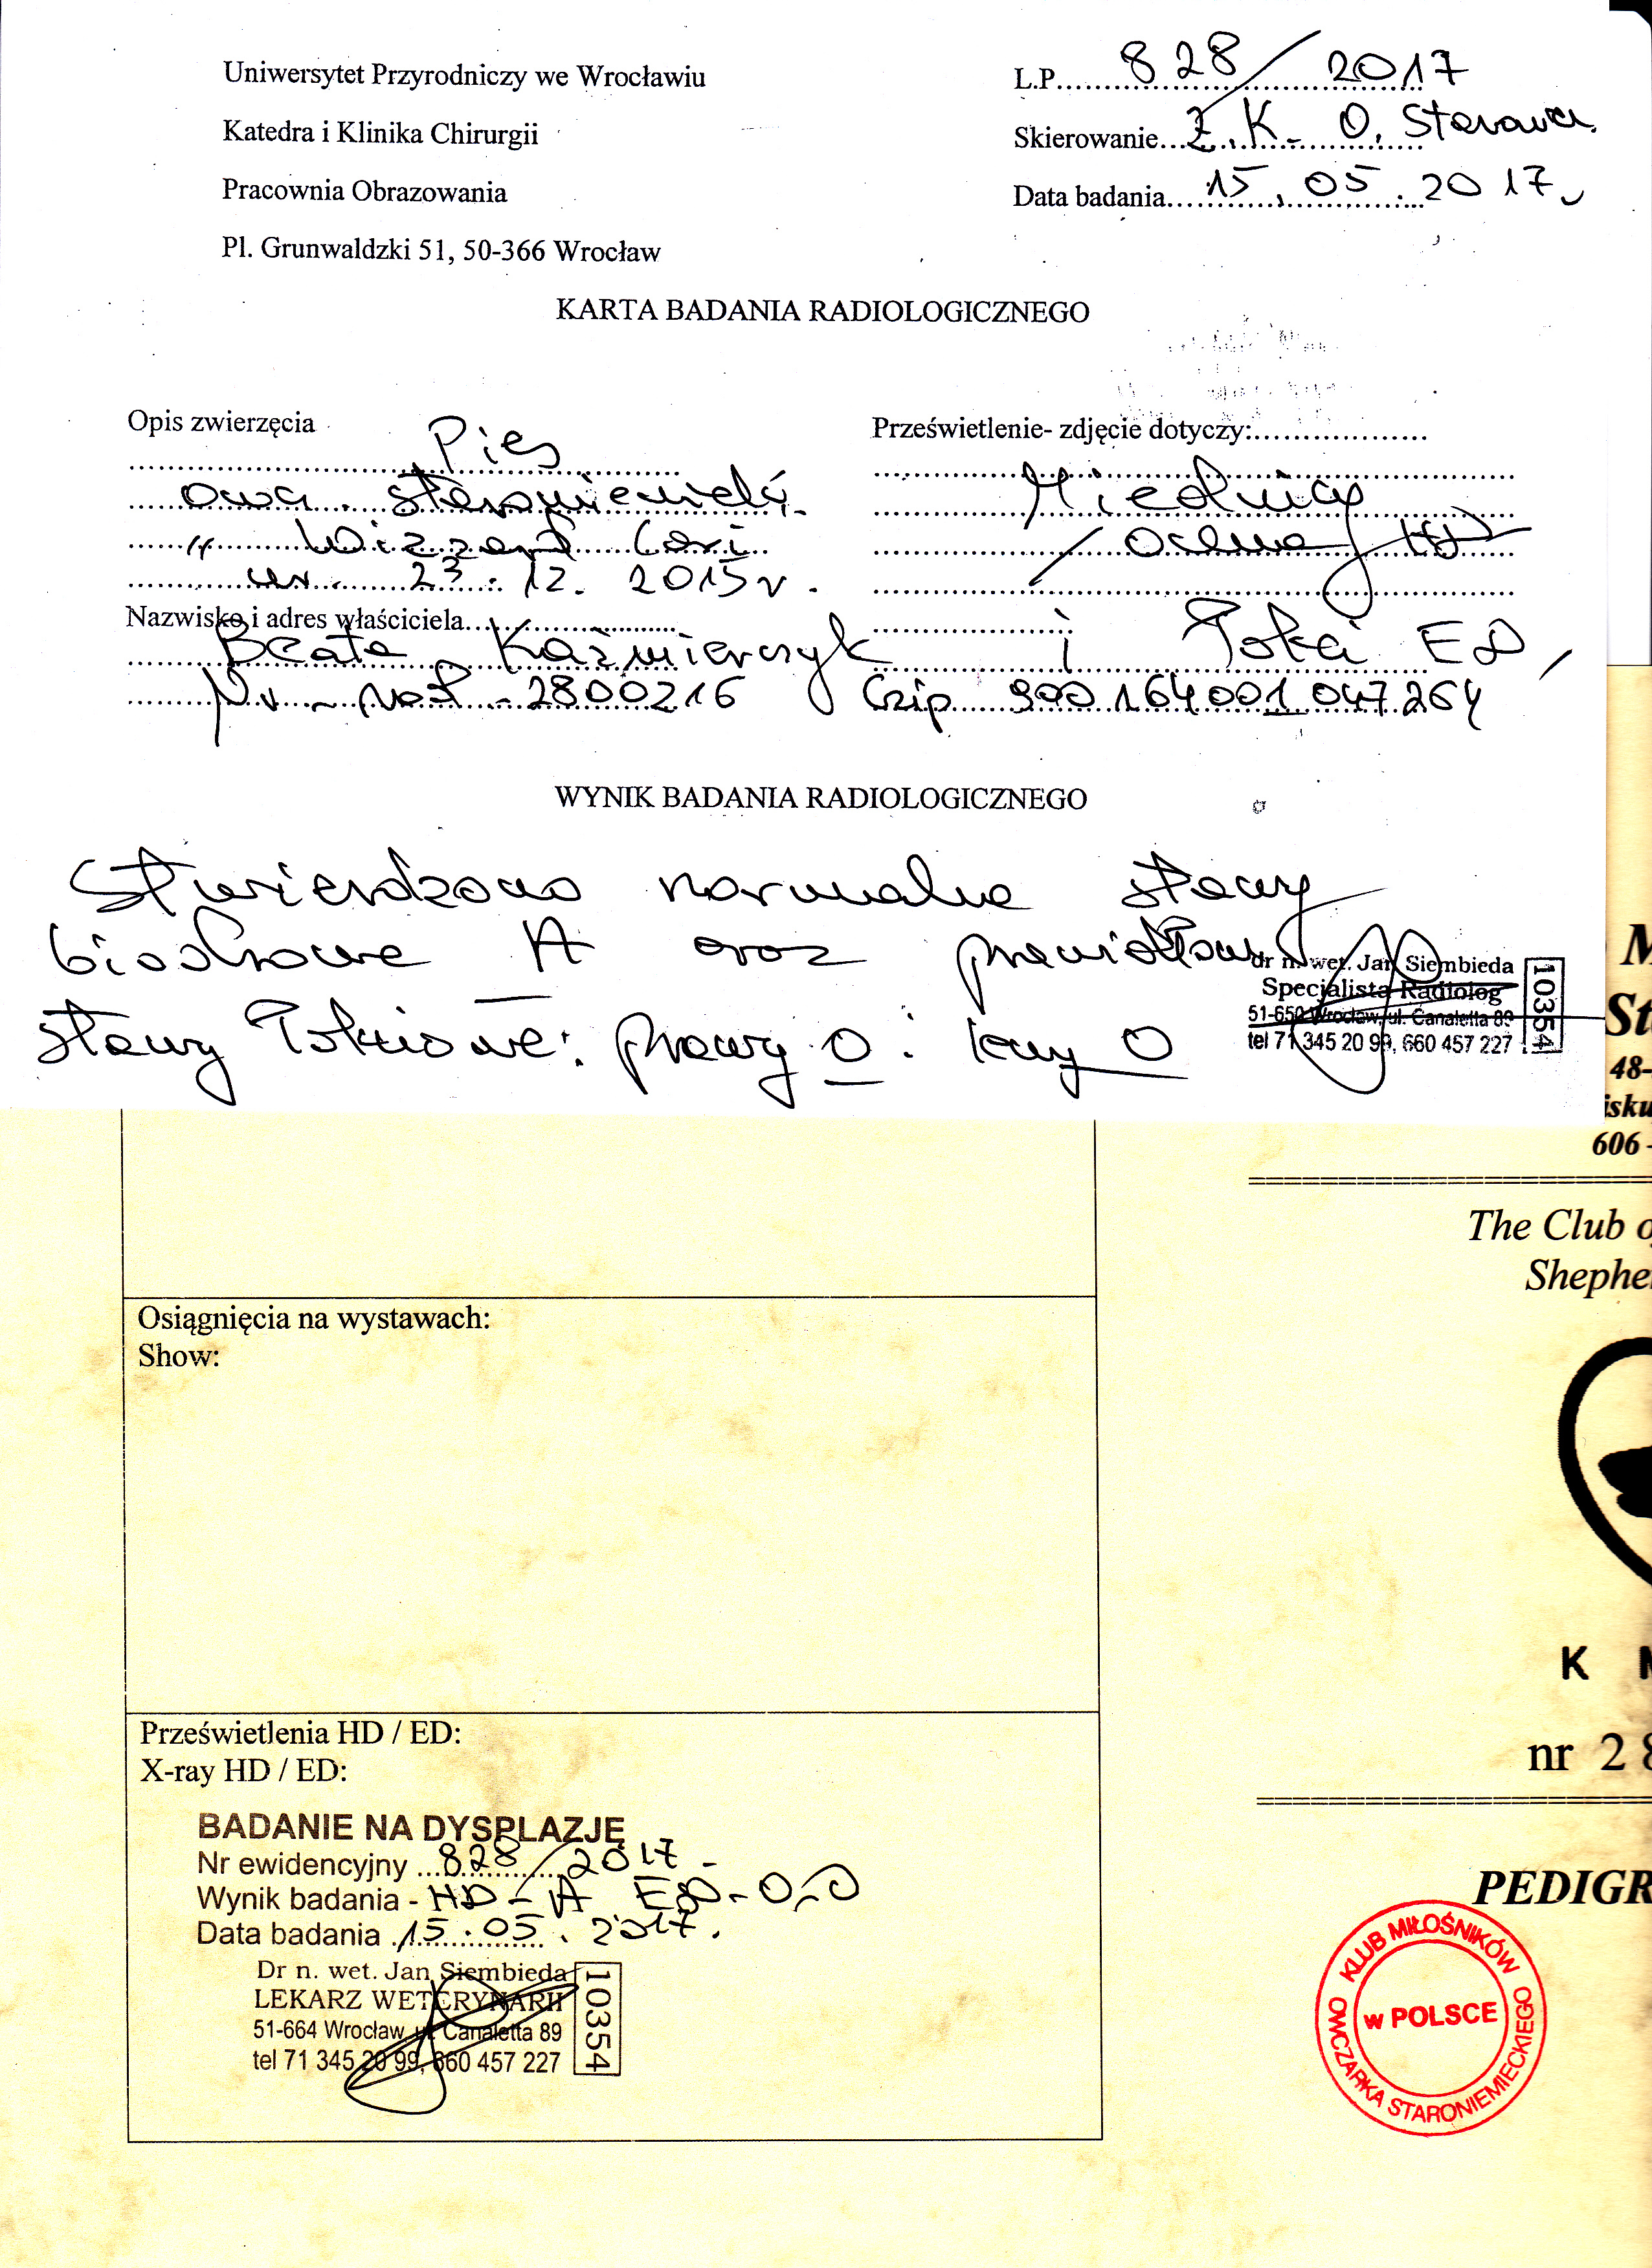 Uniwersytet Przyrodniczy we Wrocławiu
Katedra i Klinika Chirurgii
Pracownia Obrazowania
Pl. Grunwaldzki 51, 50-366 Wrocław
L.P. 828/2017
Skierowanie Z.K. O.
Data badania 15.05.2017
KARTA BADANIA RADIOLOGICZNEGO
Opis zwierzęcia
Pies
owcz. staroniemiecki
"Wizzard Cori
ur. 23.12.2015 r.
Prześwietlenie- zdjęcie dotyczy:
Miednicy
/ocena HD/
i Łokci ED,
Nazwisko i adres właściciela
Beata Kaźmierczyk
Nr. rod - 2800216 Czip 900 164001 047264
WYNIK BADANIA RADIOLOGICZNEGO
Stwierdzono normalne stawy
biodrowe A oraz prawidłowe
stawy łokciowe: prawy 0 i lewy 0
dr n. wet. Jan Siembieda
Specjalista Radiolog
51-650 Wrocław, ul. Canaletta 89
tel 71 345 20 99, 660 457 227
10354
M
St
48-
isku
606 -
The Club o
Shephe
K M
nr 2 8
PEDIGR
KLUB MIŁOŚNIKÓW OWCZARKA STARONIEMIECKIEGO
w POLSCE
Osiągnięcia na wystawach:
Show:
Prześwietlenia HD / ED:
X-ray HD / ED:
BADANIE NA DYSPLAZJĘ
Nr ewidencyjny 828/2017
Wynik badania - HD - A ED - 0-0
Data badania 15.05.2017.
Dr n. wet. Jan Siembieda
LEKARZ WETERYNARII
51-664 Wrocław, ul. Canaletta 89
tel 71 345 20 99, 660 457 227
10354